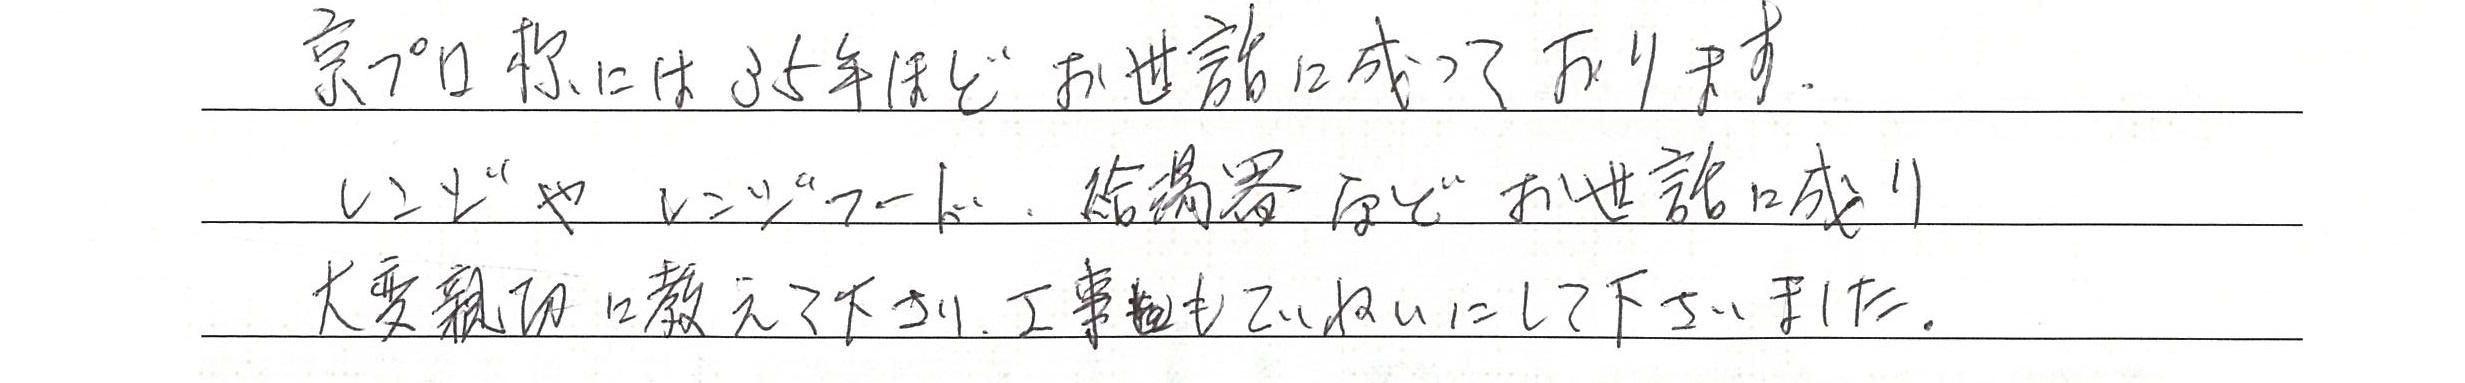 京プロ様には35年ほどお世話に成っております.
レンジやレンジフード.給湯器などお世話に成り
大変親切に教えて下さり.工事もていねいにして下さいました.